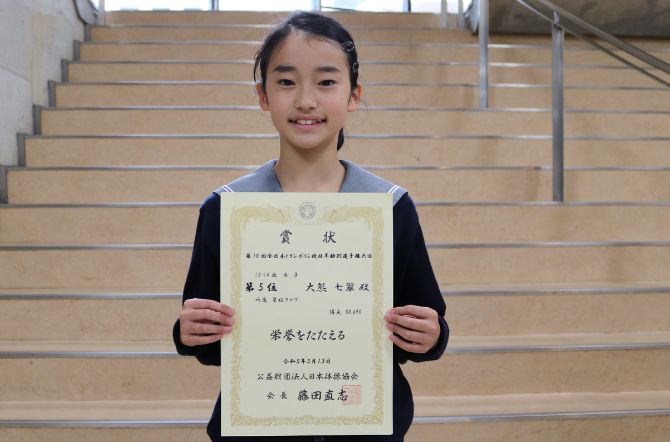 賞状
第10回全日本トランポリン競技年齢別選手権大会
13-14歳 女子
第5位 大熊 七翠 殿
得点 88.690
栄誉をたたえる
令和5年5月13日
公益財団法人日本体操協会
会長 藤田直志